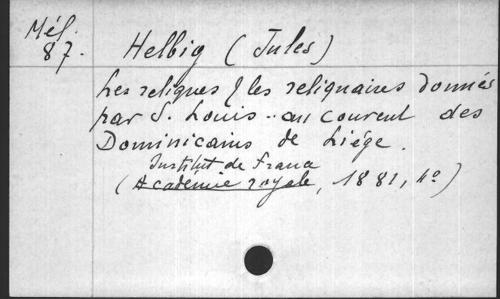 Mél.
87.
Helbig (Jules)
Les reliques & les reliquaires donnés
par S. Louis au couvent des
Dominicains de Liége.
Institut de France
(Académie royale, 1881, 4º)